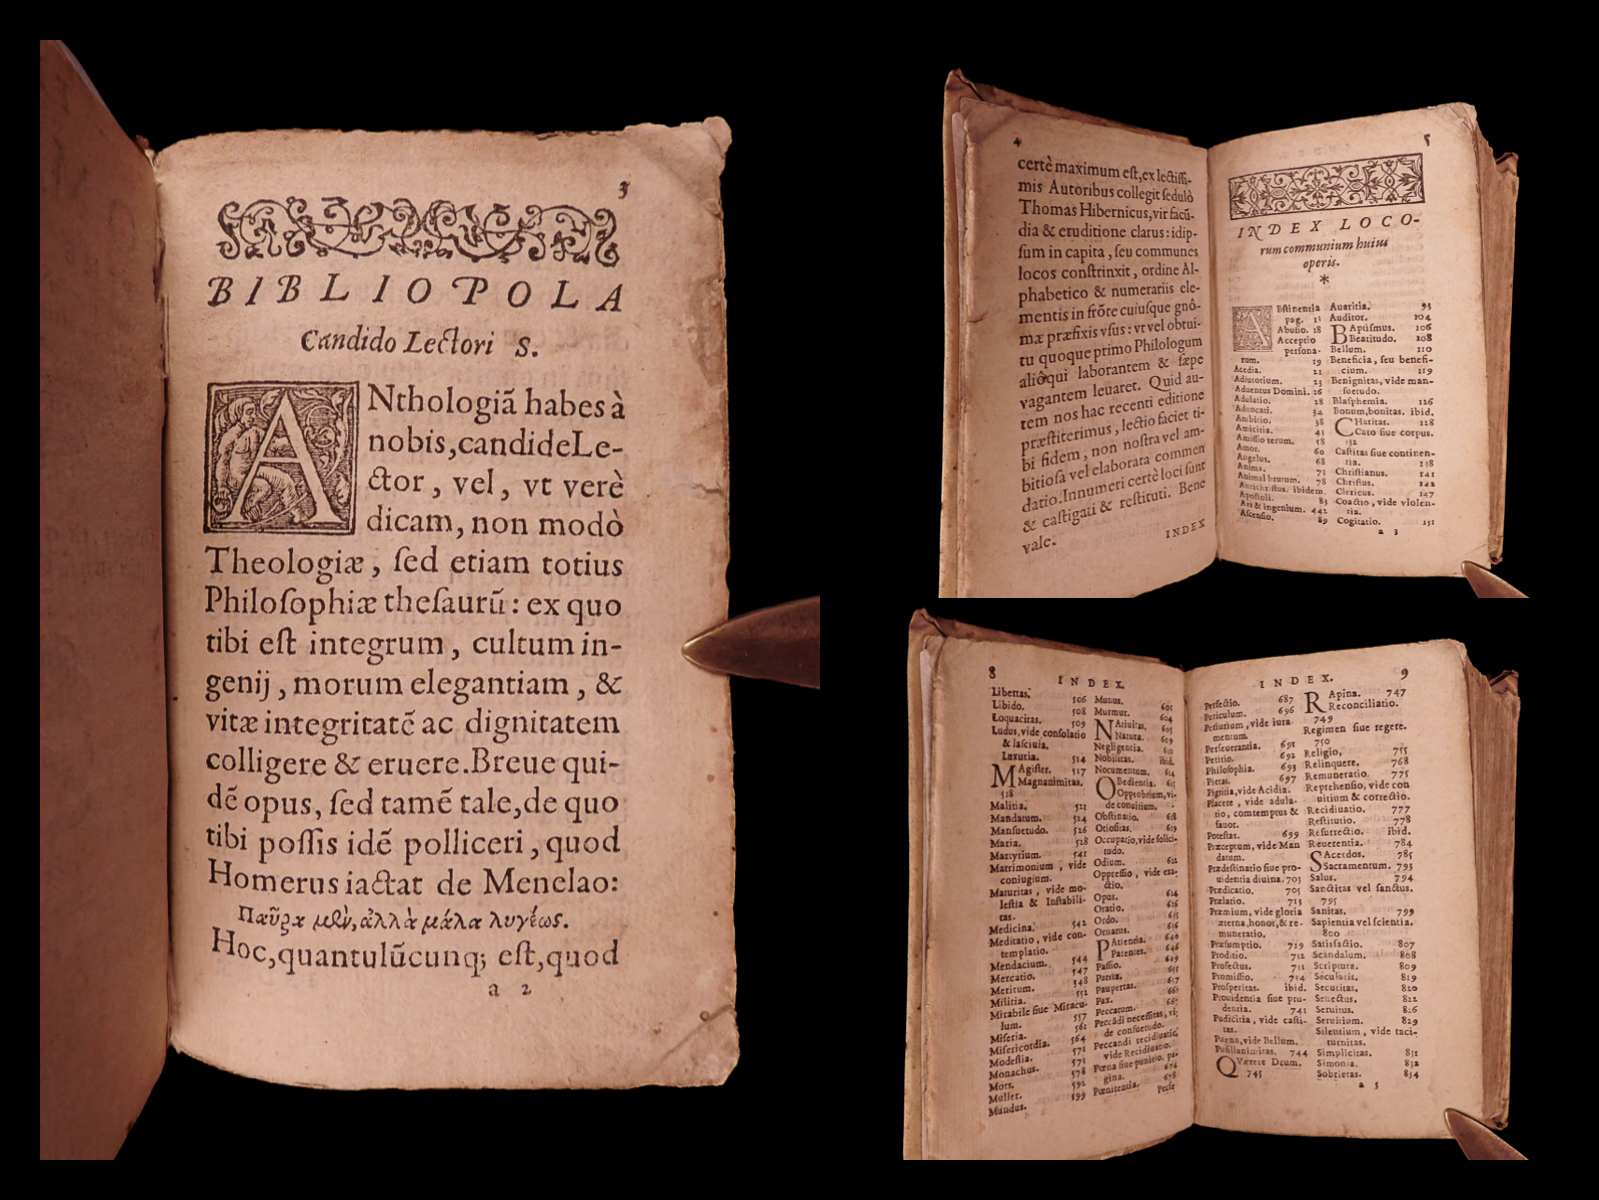 3
BIBLIOPOLA
Candido Lectori S.
ANthologiã habes à
nobis,candideLe-
ctor , vel , vt verè
dicam, non modò
Theologiæ , ſed etiam totius
Philoſophiæ theſaurũ : ex quo
tibi eſt integrum , cultum in-
genij , morum elegantiam , &
vitæ integritatẽ ac dignitatem
colligere & eruere.Breue qui-
dẽ opus, ſed tamẽ tale,de quo
tibi poſſis idẽ polliceri , quod
Homerus iactat de Menelao:
Παῦρα μὲν, ἀλλὰ μάλα λυγέως.
Hoc,quantulũcunq; eſt,quod
a 2
4
certè maximum eſt,ex lectiſſi-
mis Autoribus collegit ſedulò
Thomas Hibernicus,vir facũ-
dia & eruditione clarus : idip-
ſum in capita , ſeu communes
locos conſtrinxit , ordine Al-
phabetico & numerariis ele-
mentis in frõte cuiuſque gnô-
mæ præfixis vſus : vt vel obtui-
tu quoque primo Philologum
aliôqui laborantem & ſæpe
vagantem leuaret. Quid au-
tem nos hac recenti editione
præſtiterimus , lectio faciet ti-
bi fidem , non noſtra vel am-
bitioſa vel elaborata commen
datio.Innumeri certè loci ſunt
& caſtigati & reſtituti. Bene
vale.
INDEX
5
INDEX LOCO-
rum communium huius
operis.
*
ABſtinentia
pag. 11
Abuſio. 18
Acceptio
perſona-
rum. 19
Acedia. 21
Adiutorium. 23
Aduentus Domini. 26
Adulatio. 28
Aduocati. 34
Ambitio. 38
Amicitia. 43
Amiſſio rerum. 58
Amor. 60
Angelus. 68
Anima. 71
Animal brutum. 78
Antichriſtus. ibidem.
Apoſtoli. 83
Ars & ingenium. 442
Aſcenſio. 89
Auaritia. 93
Auditor. 104
BAptiſmus. 106
Beatitudo. 108
Bellum. 110
Beneficia, ſeu benefi-
cium. 119
Benignitas, vide man-
ſuetudo.
Blaſphemia. 126
Bonum,bonitas. ibid.
CHaritas. 128
Caro ſiue corpus.
132
Caſtitas ſiue continen-
tia. 138
Chriſtianus. 141
Chriſtus. 142
Clericus. 147
Coactio, vide violen-
tia.
Cogitatio. 151
a 3
8
INDEX.
Libertas. 506
Libido. 508
Loquacitas. 509
Ludus,vide conſolatio
& laſciuia.
Luxuria. 514
MAgiſter. 517
Magnanimitas.
518
Malitia. 521
Mandatum. 524
Manſuetudo. 526
Maria. 528
Martyrium. 541
Matrimonium , vide
coniugium.
Maturitas , vide mo-
leſtia & Inſtabili-
tas.
Medicina. 542
Meditatio, vide con-
templatio.
Mendacium. 544
Mercatio. 547
Meritum. 548
Militia. 552
Mirabile ſiue Miracu-
lum. 557
Miſeria. 561
Miſericordia. 564
Modeſtia. 571
Monachus. 571
Mors. 578
Mulier. 592
Mundus. 599
Munus. 601
Murmur. 604
NAtiuitas. 605
Natura. 609
Negligentia.
Nobilitas. ibid.
Nocumentum. 614
OBedientia. 615
Opprobrium,vi-
de conuitium.
Obſtinatio. 618
Otioſitas. 619
Occupatio,vide ſolici-
tudo.
Odium. 622
Oppreſſio , vide exa-
ctio.
Opus. 624
Oratio. 626
Ordo.
Ornatus. 636
PAtientia. 640
Parentes. 646
Paſſio. 649
Patria. 655
Paupertas. 657
Pax.
Peccatum.
Peccãdi neceſſitas, vi-
de conſuetudo.
Peccandi recidiuatio,
vide Recidiuatio.
Pœna ſiue punitio. pa-
gina. 674
Pœnitentia. 678
Perfe
9
INDEX.
Perfectio. 687
Periculum. 696
Periurium , vide iura-
mentum.
Perſeuerantia. 691
Petitio. 692
Philoſophia. 693
Pietas. 697
Pigritia,vide Acidia.
Placere , vide adula-
tio, comtemptus &
fauor.
Poteſtas. 699
Præceptum, vide Man
datum.
Prædeſtinatio ſiue pro-
uidentia diuina. 703
Prædicatio. 705
Prælatio. 713
Præmium, vide gloria
æterna,honor,& re-
muneratio.
Præſumptio. 719
Proditio. 712
Profectus. 711
Promiſſio. 714
Proſperitas. ibid.
Prouidentia ſiue pru-
dentia. 741
Pudicitia, vide caſti-
tas.
Pugna,vide Bellum.
Puſillanimitas. 744
QVærere Deum.
745
RApina. 747
Reconciliatio.
749
Regimen ſiue regere.
750
Religio. 755
Relinquere. 768
Remuneratio. 775
Reprehenſio, vide con
uitium & correctio.
Recidiuatio. 777
Reſtitutio. 778
Reſurrectio. ibid.
Reuerentia. 784
SAcerdos. 785
Sacramentum. 793
Salus. 794
Sanctitas vel ſanctus.
795
Sanitas. 799
Sapientia vel ſcientia.
800
Satisfactio. 807
Scandalum. 808
Scriptura. 809
Secularis. 819
Securitas. 820
Senectus. 822
Seruitus. 826
Seruitium. 829
Silentium , vide taci-
turnitas.
Simplicitas. 831
Simonia. 832
Sobrietas. 834
a 5